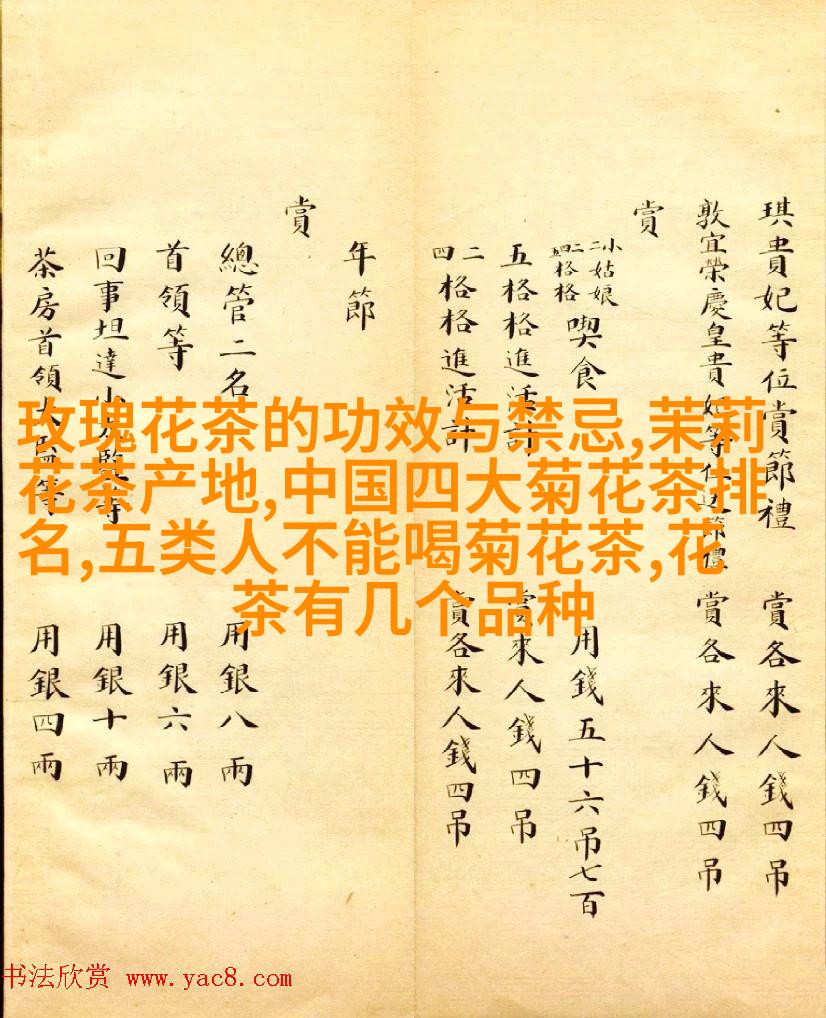 琪貴妃等位賞節禮 賞各來人錢四吊
敦宜榮慶皇貴妃等位送節禮 賞各來人錢四吊
賞
小姑娘
格格
喫食 用錢五十六吊七百
五格格進活計 賞來人錢四吊
二四格格進活計 賞各來人錢四吊
年節
賞
總管二名 用銀八兩
首領等 用銀六兩
回事坦達小太監等 用銀十兩
茶房首領太監等 用銀四兩
玫瑰花茶的功效与禁忌,茉莉
花茶产地,中国四大菊花茶排
名,五类人不能喝菊花茶,花
茶有几个品种
书法欣赏 www.yac8.com